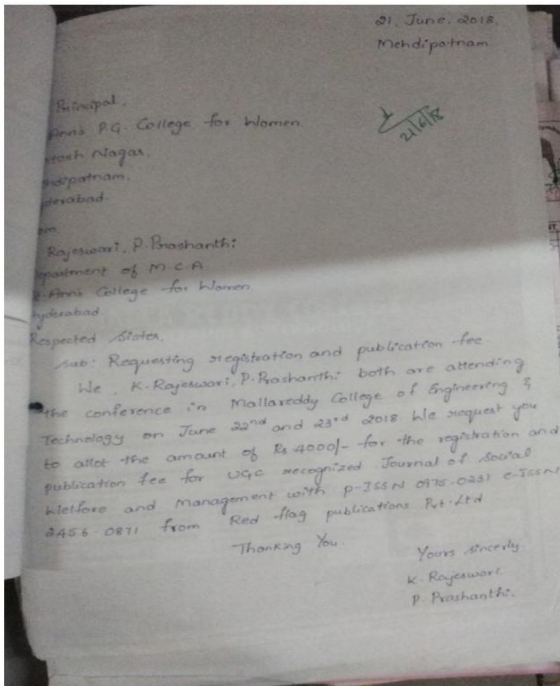 21. June. 2018.
Mehdipatnam
Principal,
Ann's P.G. College for Women.
21/6/18
Nagar,
Rajeswari, P. Prashanthi
Department of M.C.A
Ann's College for Women.
Hyderabad
Respected Sister,
Sub: Requesting registration and publication fee.
We, K. Rajeswari, P. Prashanthi both are attending
the conference in Mallareddy College of Engineering &
Technology on June 22nd and 23rd 2018. We request you
to allot the amount of Rs 4000/- for the registration and
publication fee for UGC recognized Journal of Social
Welfare and Management with P-ISSN 0975-0231 e-ISSN
2456-0871 from Red flag publications Pvt. Ltd
Thanking You.
Yours sincerly.
K. Rajeswari
P. Prashanthi.